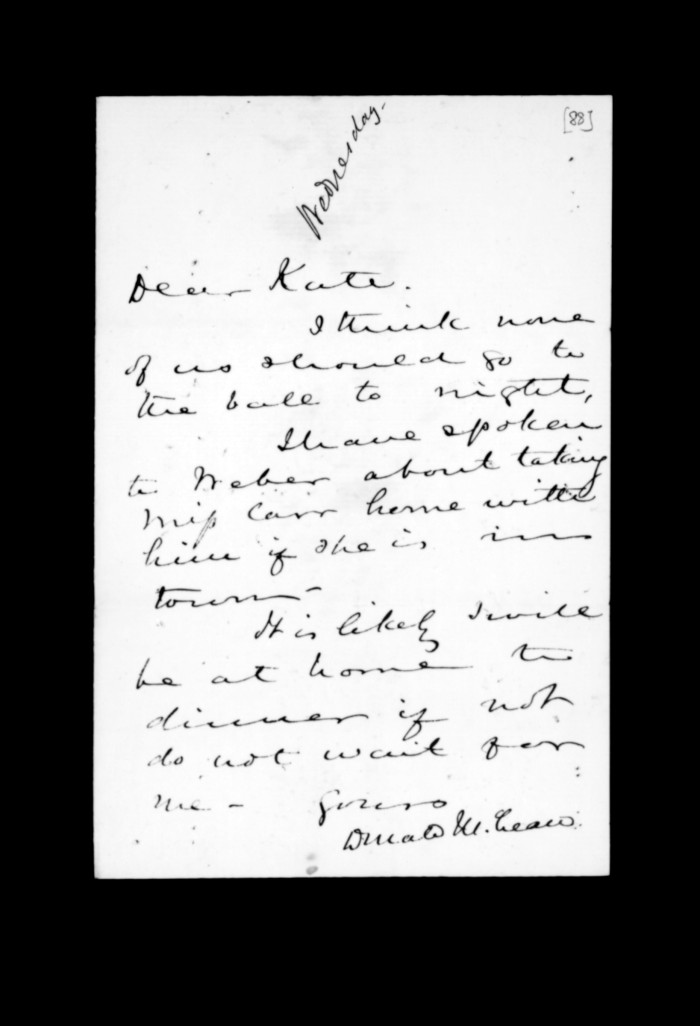 [88]
Wednesday.
Dear Kate.
I think none
of us should go to
the ball to night,
I have spoken
to Weber about taking
Miss Carr home with
him if she is in
town -
It is likely I will
be at home to
dinner if not
do not wait for
me - Yours
Donald McLean